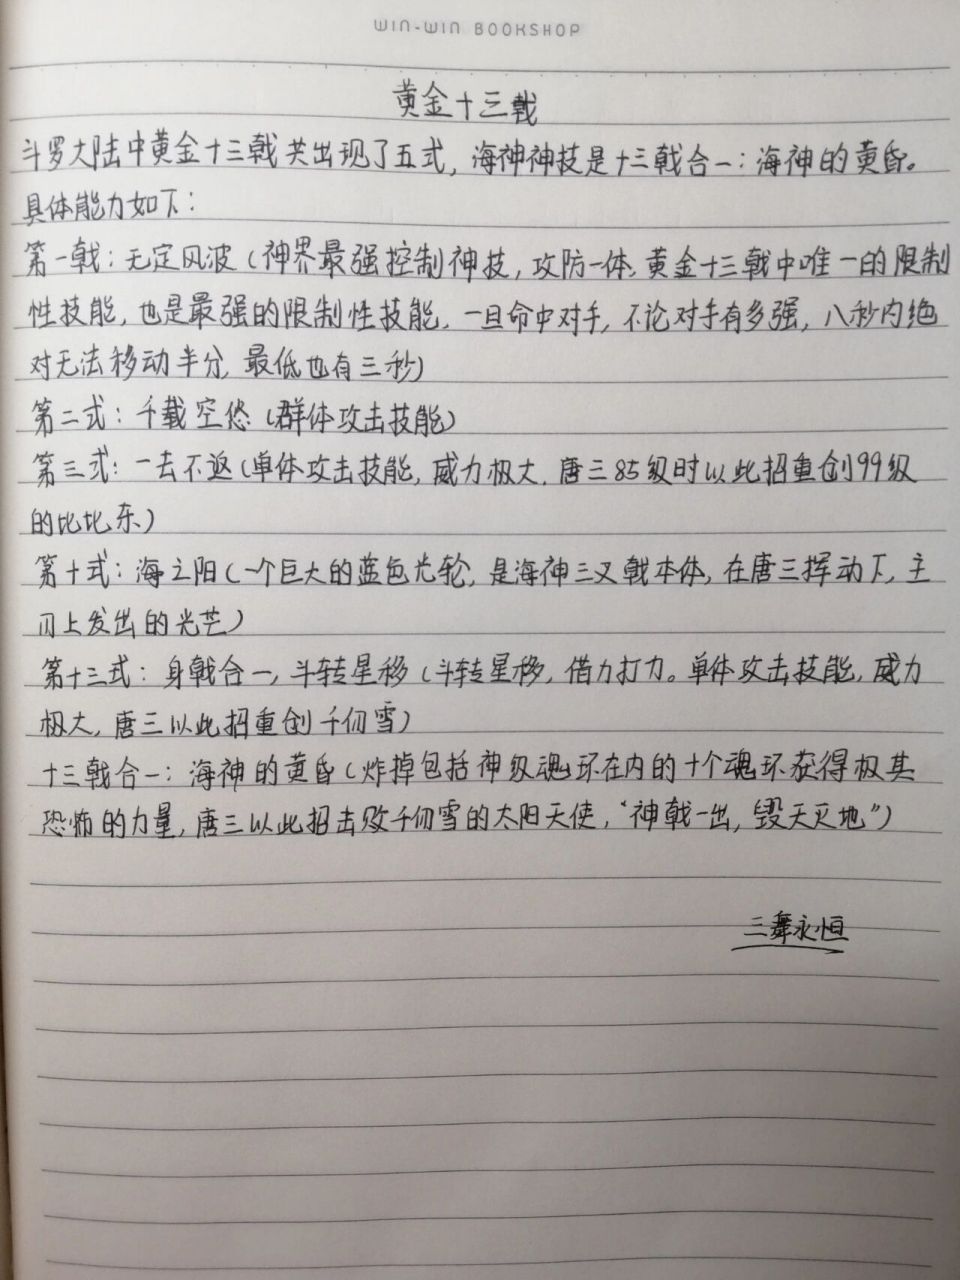 WIN-WIN BOOKSHOP
黄金十三戟
斗罗大陆中黄金十三戟共出现了五式，海神神技是十三戟合一：海神的黄昏。
具体能力如下：
第一戟：无定风波（神界最强控制神技，攻防一体，黄金十三戟中唯一的限制
性技能，也是最强的限制性技能，一旦命中对手，不论对手有多强，八秒内绝
对无法移动半分，最低也有三秒）
第二式：千载空悠（群体攻击技能）
第三式：一去不返（单体攻击技能，威力极大，唐三85级时以此招重创99级
的比比东）
第十式：海之阳（一个巨大的蓝色光轮，是海神三叉戟本体，在唐三挥动下，主
刃上发出的光芒）
第十三式：身戟合一，斗转星移（斗转星移，借力打力。单体攻击技能，威力
极大，唐三以此招重创千仞雪）
十三戟合一：海神的黄昏（炸掉包括神级魂环在内的十个魂环获得极其
恐怖的力量，唐三以此招击败千仞雪的太阳天使，“神戟一出，毁天灭地”）
三舞永恒